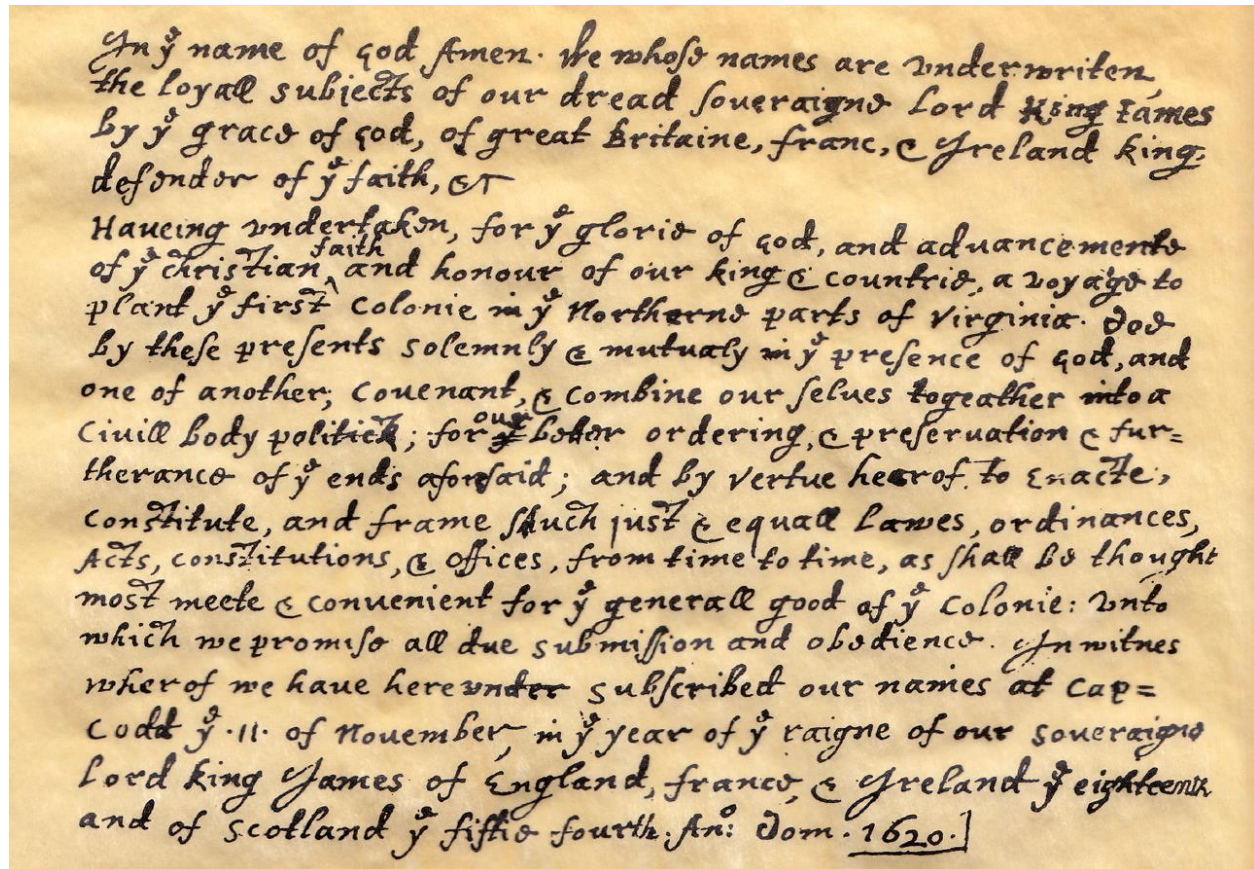 In yͤ name of god Amen· We whose names are vnderwriten,
the loyall subjects of our dread soueraigne Lord King Iames
by yͤ grace of god, of great Britaine, franc, & Ireland king,
defender of yͤ faith, &c
Haueing vndertaken, for yͤ glorie of god, and aduancemente
of yͤ christian ^faith and honour of our king & countrie, a voyage to
plant yͤ first colonie in yͤ Northerne parts of Virginia· doe
by these presents solemnly & mutualy in yͤ presence of god, and
one of another; couenant, & combine our selues togeather into a
Ciuill body politick; for our better ordering, & preseruation & fur=
therance of yͤ ends aforesaid; and by vertue hearof, to Enacte,
constitute, and frame shuch just & equall Lawes, ordinances,
Acts, constitutions, & offices, from time to time, as shall be thought
most meete & conuenient for yͤ generall good of yͤ colonie: vnto
which we promise all due submission and obedience. In witnes
wherof we haue herevnder subscribed our names at Cap=
Codd yͤ ·11· of Nouember, in yͤ year of yͤ raigne of our soueraigne
Lord king James of England, france, & Ireland yͤ eighteenth
and of scotland yͤ fiftie fourth. Anͦ: dom· 1620·]